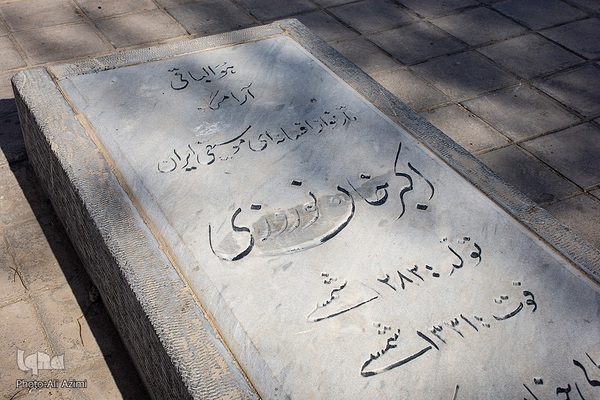 هوالباقی
آرامگاه
تارنواز افسانه‌ای موسیقی ایران
اکبرخان نوروزی
تولد: ۱۲۸۳ شمسی
فوت: ۱۳۳۱ شمسی
iqna
Photo:Ali Azimi